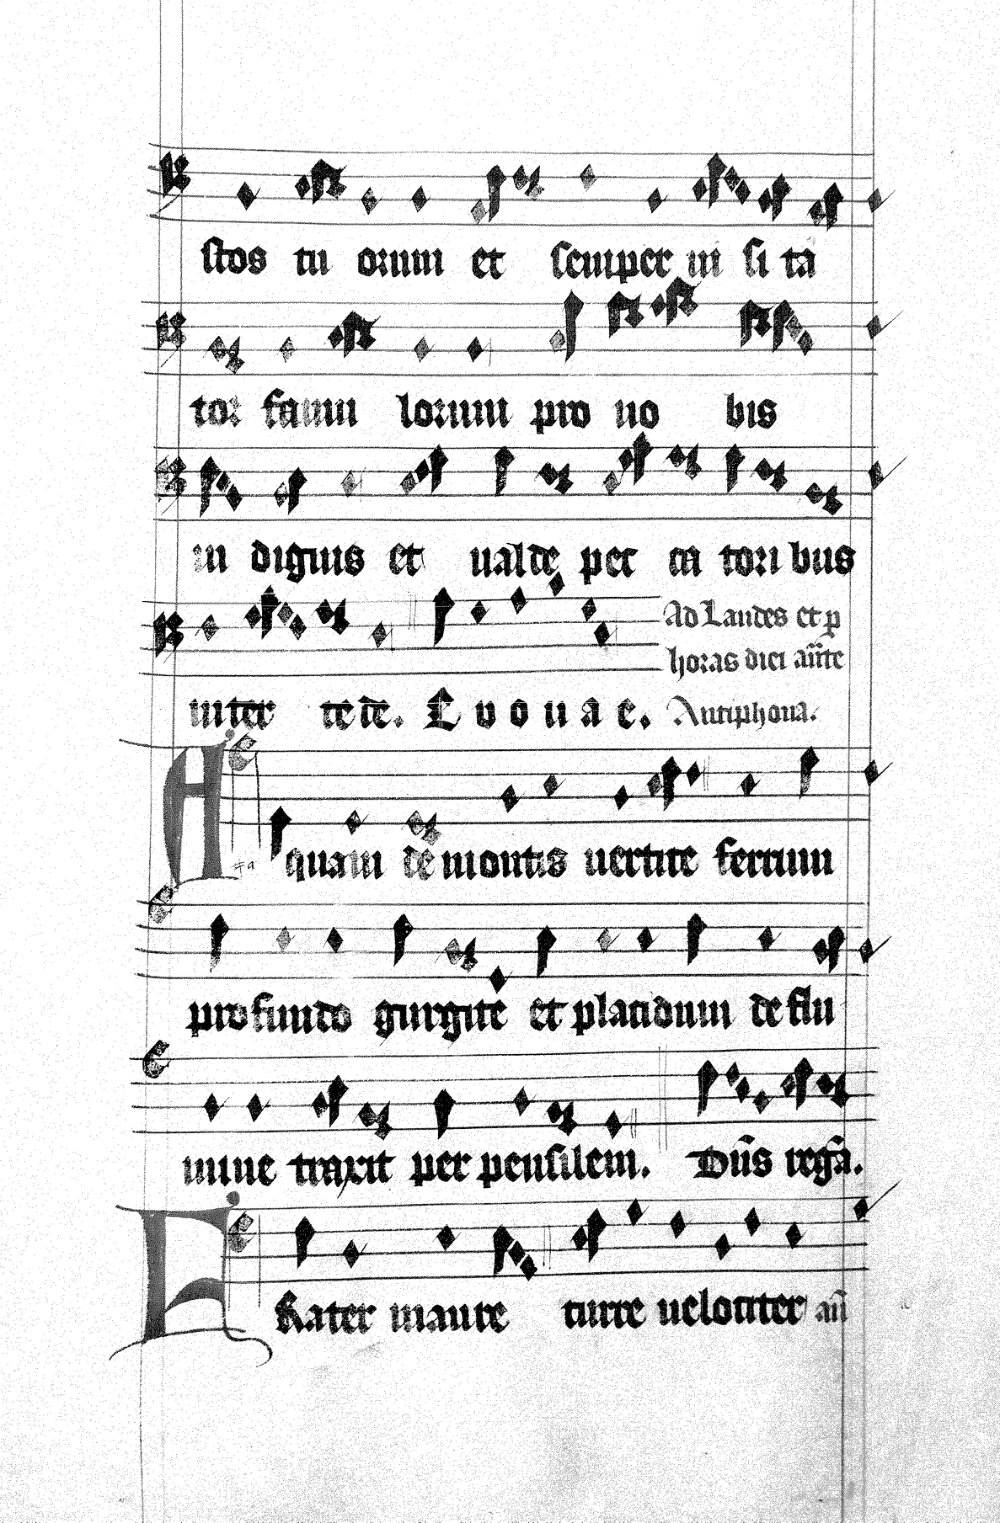 stos tu orum et semper in si ta
tor famu lorum pro no bis
in dignis et ualde pec ca tori bus
Ad Laudes et p
horas diei añte
inter cede. Euouae. Antiphona.
Aquam de montis uertice ferrum
profundo gurgite et placidum de flu
mine traxit per pensilem. Dñs regã.
Frater maure curre uelociter añ